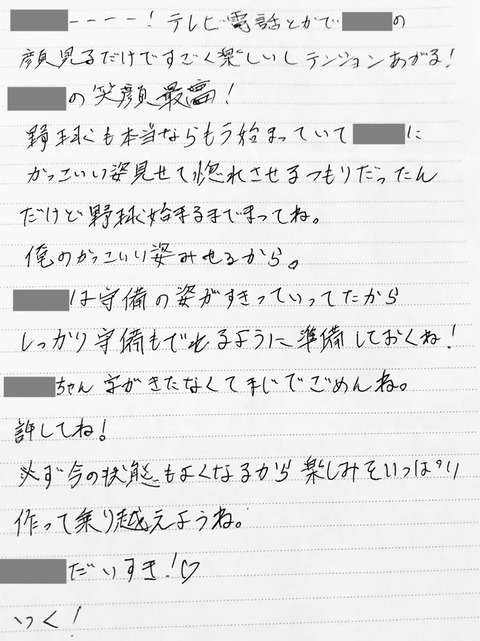 ーーーー！テレビ電話とかでの
顔見るだけですごく楽しいしテンションあがる！
の笑顔最高！
野球も本当ならもう始まっていてに
かっこいい姿見せて惚れさせるつもりだったん
だけど野球始まるまでまってね。
俺のかっこいい姿みせるから。
は守備の姿がすきっていってたから
しっかり守備もでれるように準備しておくね！
ちゃん字がきたなくてまじでごめんね。
許してね！
必ず今の状態もよくなるから楽しみをいっぱい
作って乗り越えようね。
だいすき！♡
つく！